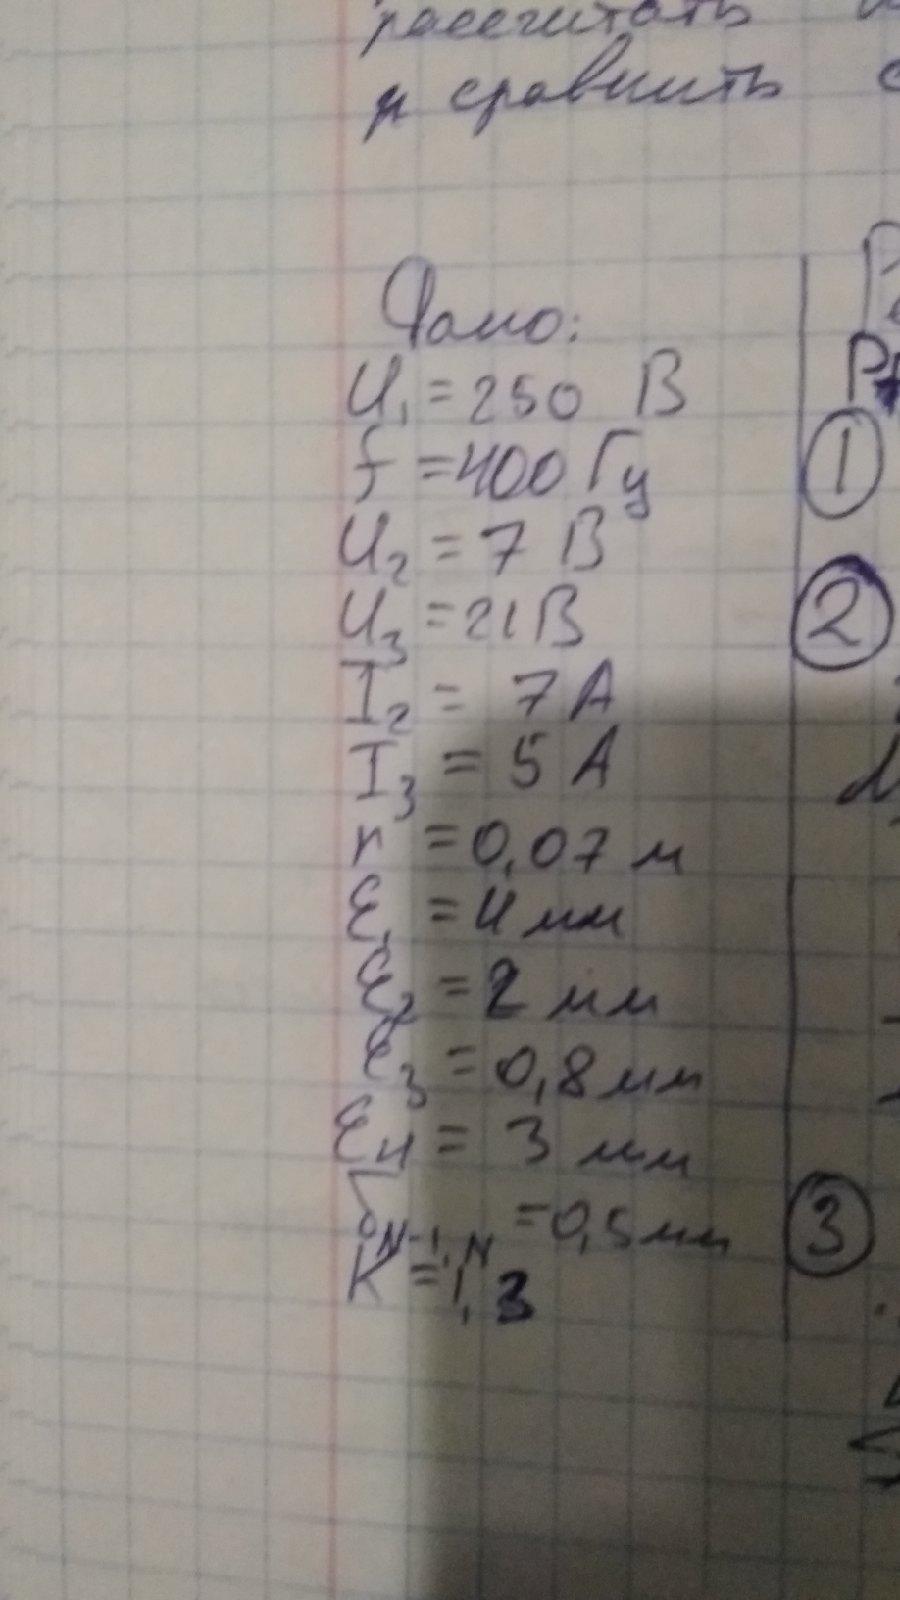 рассчитать
и сравнить с
Дано:
U₁ = 250 В
f = 400 Гц
U₂ = 7 В
U₃ = 21 В
I₂ = 7 А
I₃ = 5 А
r = 0,07 м
= 4 мм
₂ = 2 мм
₃ = 0,8 мм
₄ = 3 мм
N-1,N = 0,5 мм
K = 1,3
1
2
3